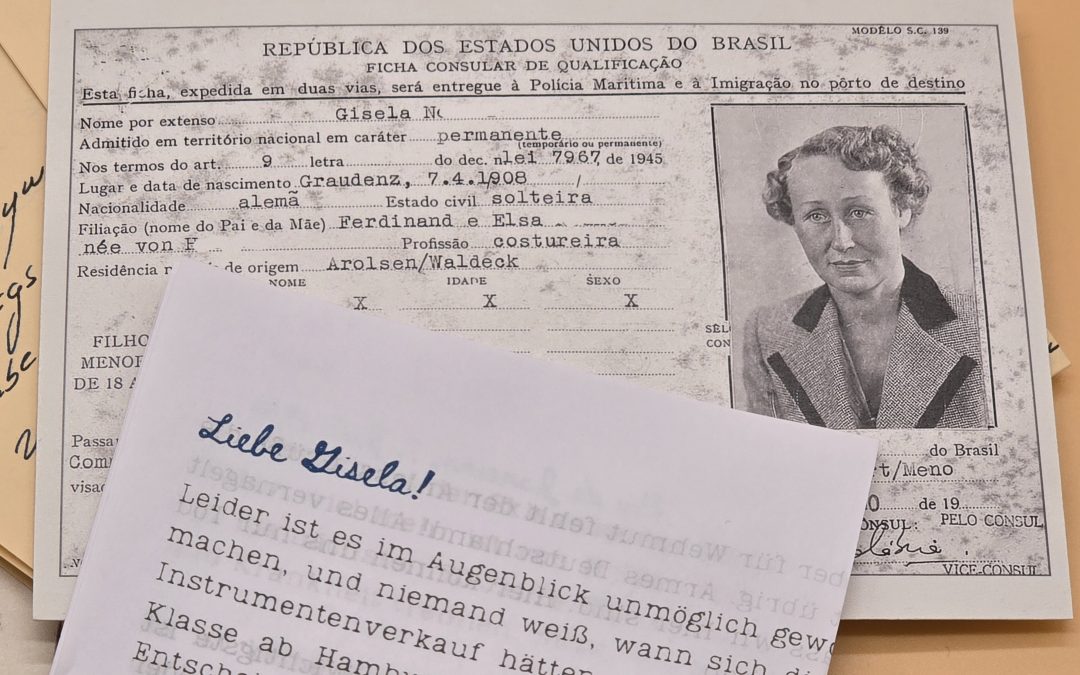 MODÊLO S.C. 139
REPÚBLICA DOS ESTADOS UNIDOS DO BRASIL
FICHA CONSULAR DE QUALIFICAÇÃO
Esta ficha, expedida em duas vias, será entregue à Polícia Maritima e à Imigração no pôrto de destino
Nome por extenso Gisela
Admitido em território nacional em caráter permanente
(temporário ou permanente)
Nos termos do art. 9 letra do dec. nlei 7967, de 1945
Lugar e data de nascimento Graudenz, 7.4.1908
Nacionalidade alemã Estado civil solteira
Filiação (nome do Pai e da Mãe) Ferdinand e Elsa
née von F Profissão costureira
Residência de origem Arolsen/Waldeck
NOME IDADE SEXO
X X X
FILHO
MENOR
DE 18 A
SÊL
CON
Passa
Com
visad
do Brasil
t/Meno
0 de 19
ONSUL: PELO CONSUL
VICE-CONSUL
Liebe Gisela!
Leider ist es im Augenblick unmöglich gewo
machen, und niemand weiß, wann sich di
Instrumentenverkauf hätten
Klasse ab Hambu
Entschei